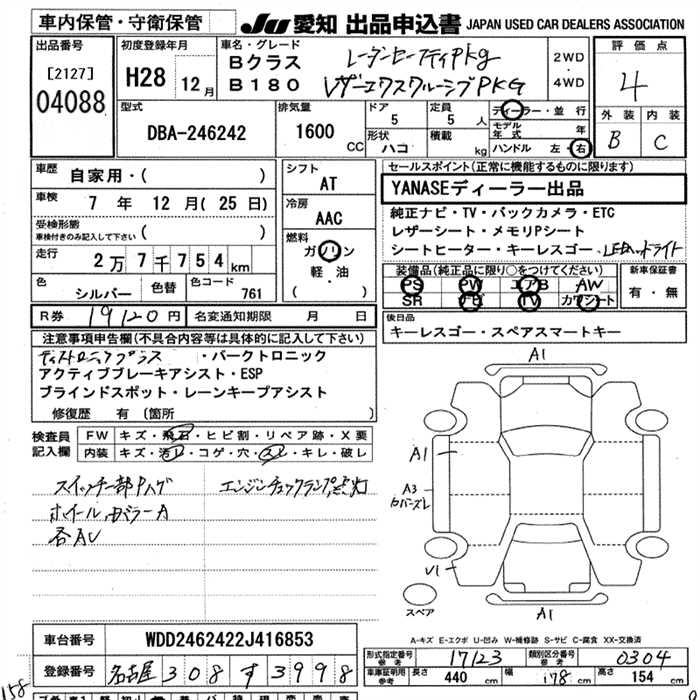 車内保管・守衛保管 JU 愛知 出品申込書 JAPAN USED CAR DEALERS ASSOCIATION
出品番号 [2127] 04088
初度登録年月 H28 12月
車名・グレード Bクラス レーダーセーフティPkg
B180 レザーエクスクルーシブPKG
2WD・4WD
評価点 4
外装 B 内装 C
型式 DBA-246242
排気量 1600 CC
ドア 5 定員 5人
形状 ハコ 積載 kg
ディーラー・並行
モデル年式 年
ハンドル 左・右
車歴 自家用・( )
車検 7年 12月(25日)
受検形態
車検付きのみ記入して下さい ( )
走行 2万7千754km
色 シルバー 色替 色コード 761
シフト AT
冷房 AAC
燃料 ガソリン
軽・油
( )
セールスポイント(正常に機能するものに限ります)
YANASEディーラー出品
純正ナビ・TV・バックカメラ・ETC
レザーシート・メモリPシート
シートヒーター・キーレスゴー・LEDヘッドライト
装備品(純正品に限り○をつけてください)
PS PW エアB AW
SR ナビ TV カワシート
新車保証書
有・無
R券 19120円 名変通知期限 月 日
後日品
キーレスゴー・スペアスマートキー
注意事項申告欄(不具合内容等は具体的に記入して下さい)
ディストロニックプラス・パークトロニック
アクティブブレーキアシスト・ESP
ブラインドスポット・レーンキープアシスト
修復歴 有(箇所 )
検査員記入欄
FW キズ・飛石・ヒビ割・リペア跡・X要
内装 キズ・汚レ・コゲ・穴・スレ・キレ・破レ
スイッチ部Pハゲ エンジンチェックランプ点灯
ホイール、カバラーA
各AU
A1
A1
A3
カバーズレ
V1
A1
スペア
A-キズ E-エクボ U-凹み W-補修跡 S-サビ C-腐食 XX-交換済
車台番号 WDD2462422J416853
登録番号 名古屋 308 す 3998
形式指定番号 参考 17123 類別区分番号 参考 0304
車庫証明用 参考 長さ 440 幅 178 高さ 154
158